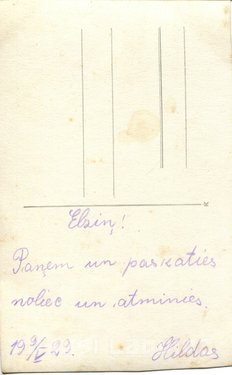 Elziņ!
Paņem un paskaties
noliec un atminies.
19 9/I 29. Hildas